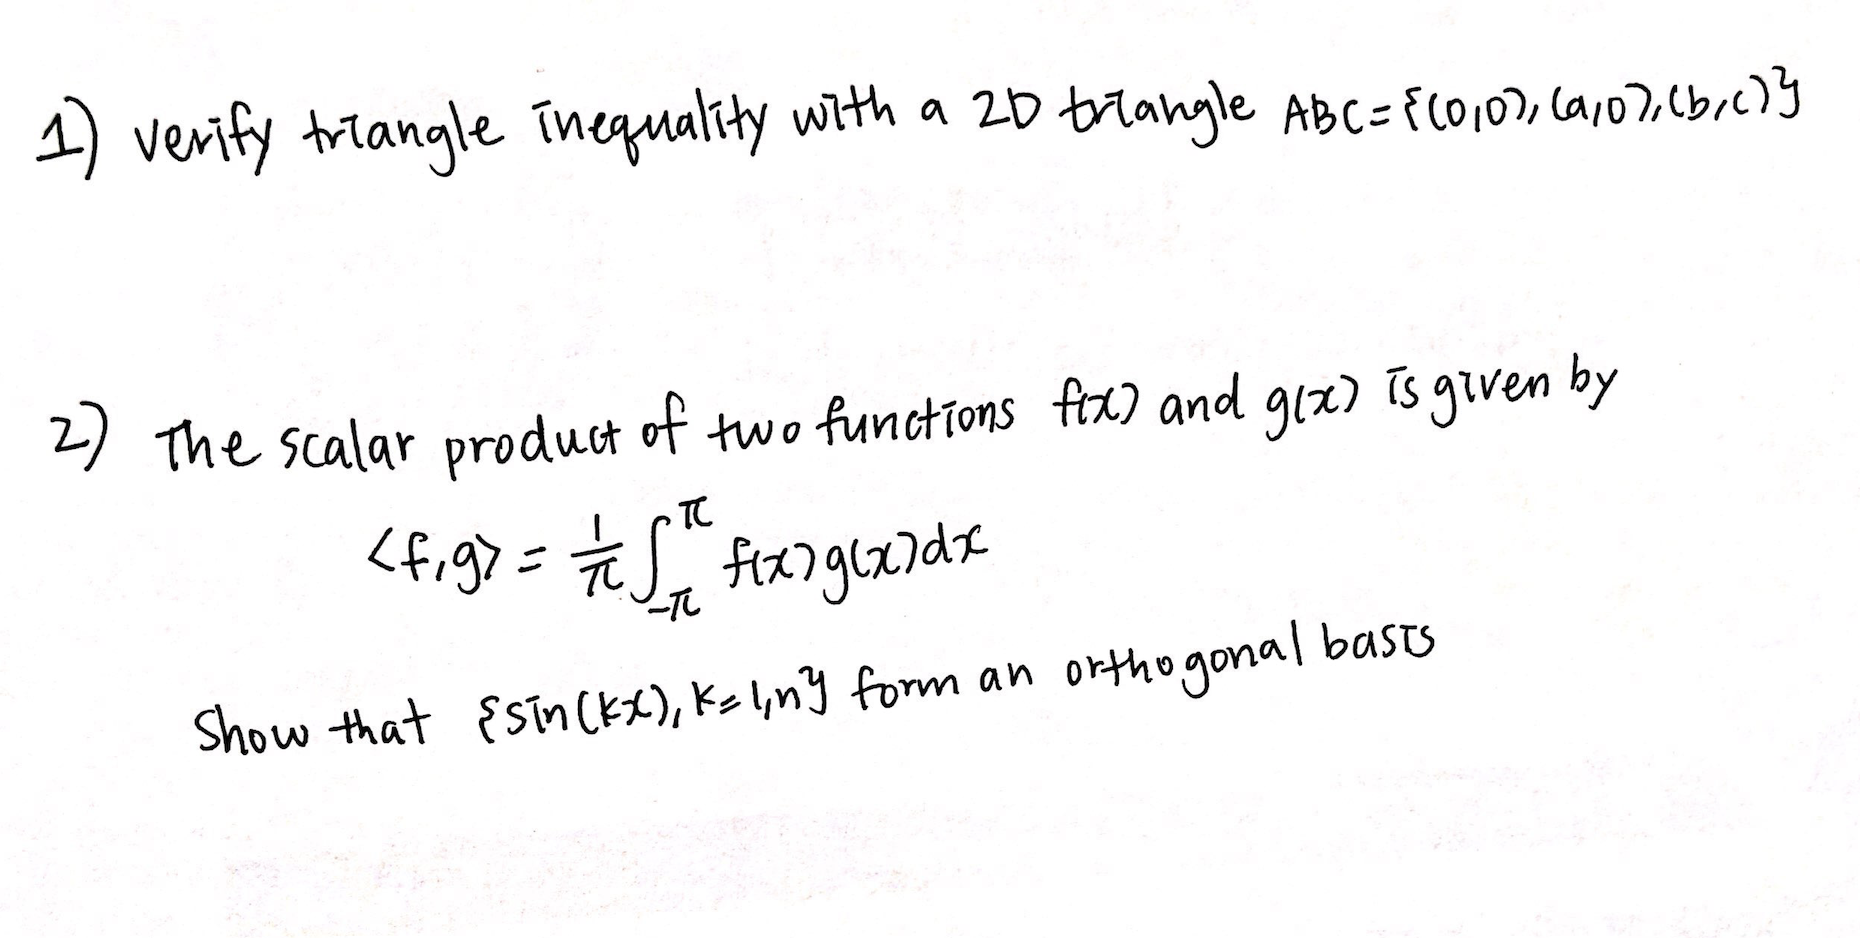 1) verify triangle inequality with a 2D triangle ABC={(0,0),(a,0),(b,c)}
2) The scalar product of two functions f(x) and g(x) is given by
<f,g> = 1/π ∫_{-π}^{π} f(x)g(x)dx
Show that {sin(kx), k=1,n} form an orthogonal basis